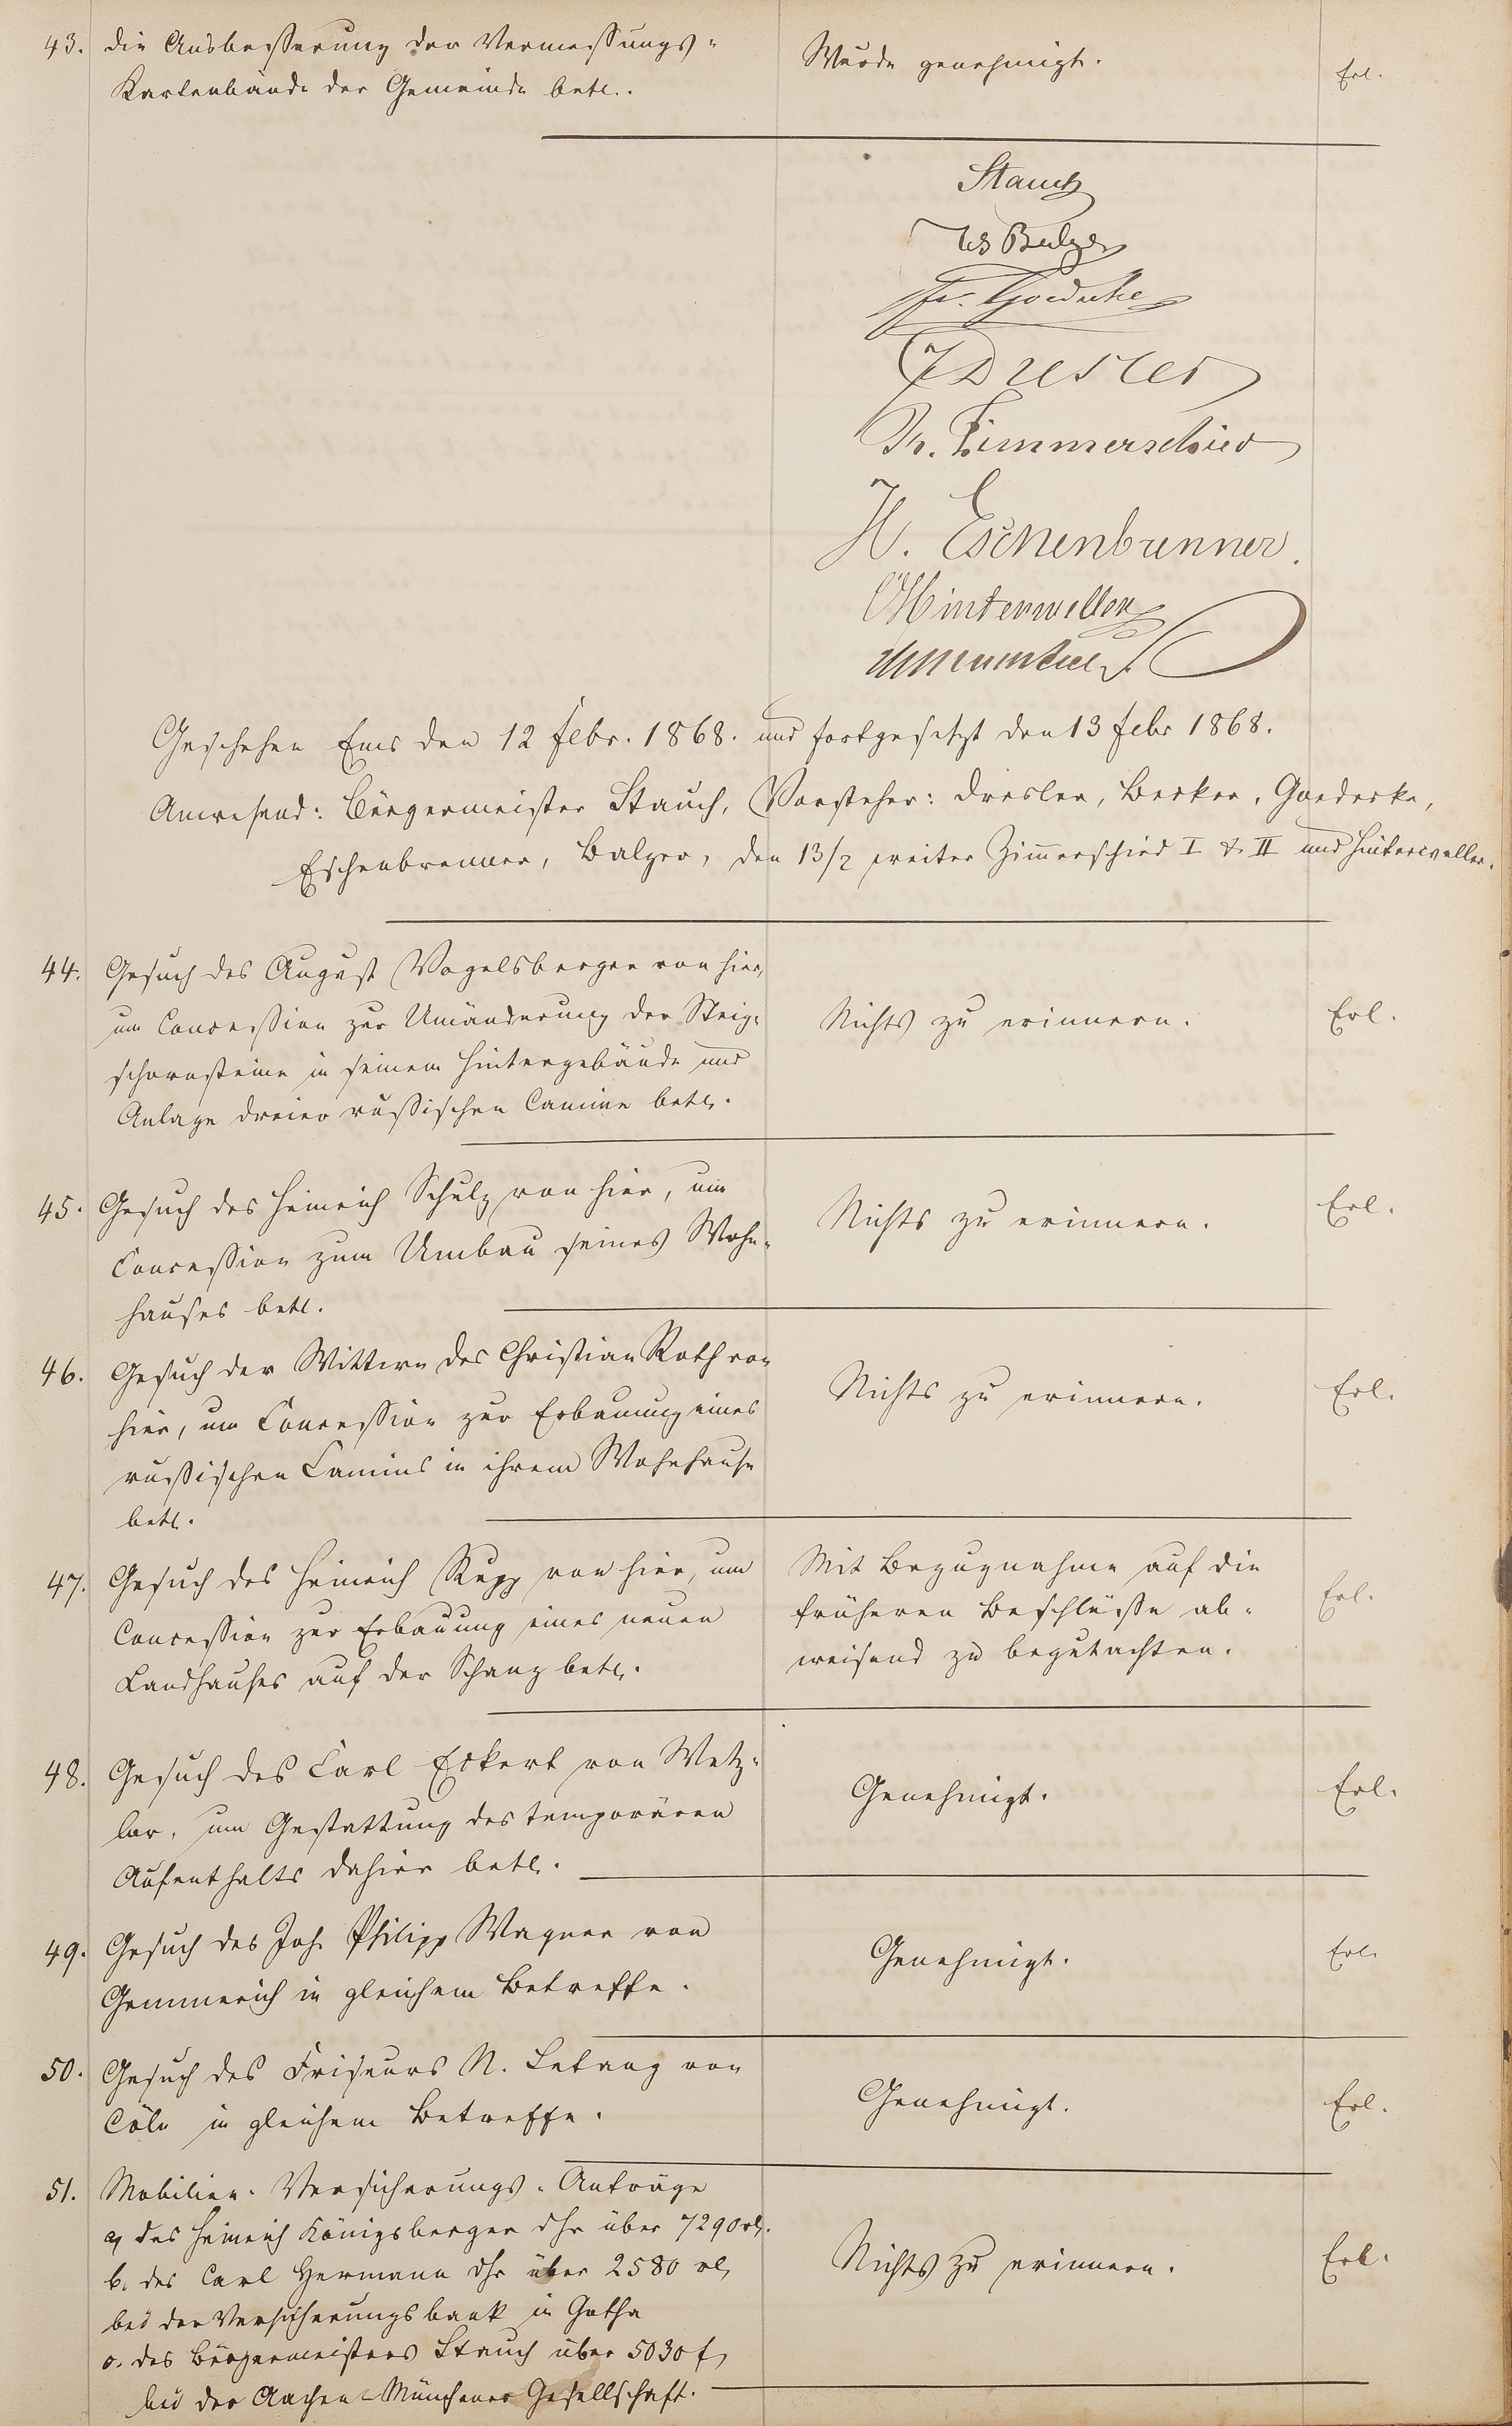 43. die Ausbesserung der Vermessungs-
Kartenbände der Gemeinde betr.
Wurde genehmigt.
Erl.
Stauch
Balzer
Fr. Goedecke
Dresler
Zimmerschied
H. Eschenbrenner.
Hinterweller
Geschehen Ems den 12 Febr. 1868. und fortgesetzt den 13 Febr 1868.
Anwesend: Bürgermeister Stauch, Vorsteher: Dresler, Becker, Goedecke,
Eschenbrenner, Balzer, den 13/2 weiter Zimmerschied I & II und Hinterweller.
44. Gesuch des August Vogelsberger von hier,
um Concession zur Umänderung der Steig-
schornsteine in seinem Hintergebäude und
Anlage dreier russischen Camine betr.
Nichts zu erinnern.
Erl.
45. Gesuch des Heinrich Schulz von hier, um
Concession zum Umbau seines Wohn-
hauses betr.
Nichts zu erinnern.
Erl.
46. Gesuch der Wittwe des Christian Roth von
hier, um Concession zur Erbauung eines
russischen Camins in ihrem Wohnhause
betr.
Nichts zu erinnern.
Erl.
47. Gesuch des Heinrich Rupp von hier, um
Concession zur Erbauung eines neuen
Landhauses auf der Schanz betr.
Mit Bezugnahme auf die
früheren Beschlüsse ab-
weisend zu begutachten.
Erl.
48. Gesuch des Carl Eckert von Wetz-
lar, um Gestattung des temporären
Aufenthalts dahier betr.
Genehmigt.
Erl.
49. Gesuch des Joh. Philipp Wagner von
Gemmerich in gleichem Betreffe.
Genehmigt.
Erl.
50. Gesuch des Friseurs N. Letang von
Cöln in gleichem Betreffe.
Genehmigt.
Erl.
51. Mobilien-Versicherungs-Anträge
a, des Heinrich Königsberger dhr über 7290 rl.
b. des Carl Hermann dhr über 2580 rl,
bei der Versicherungsbank in Gotha
c. des Bürgermeisters Stauch über 5030 f,
bei der Aachen-Münchener Gesellschaft.
Nichts zu erinnern.
Erl.